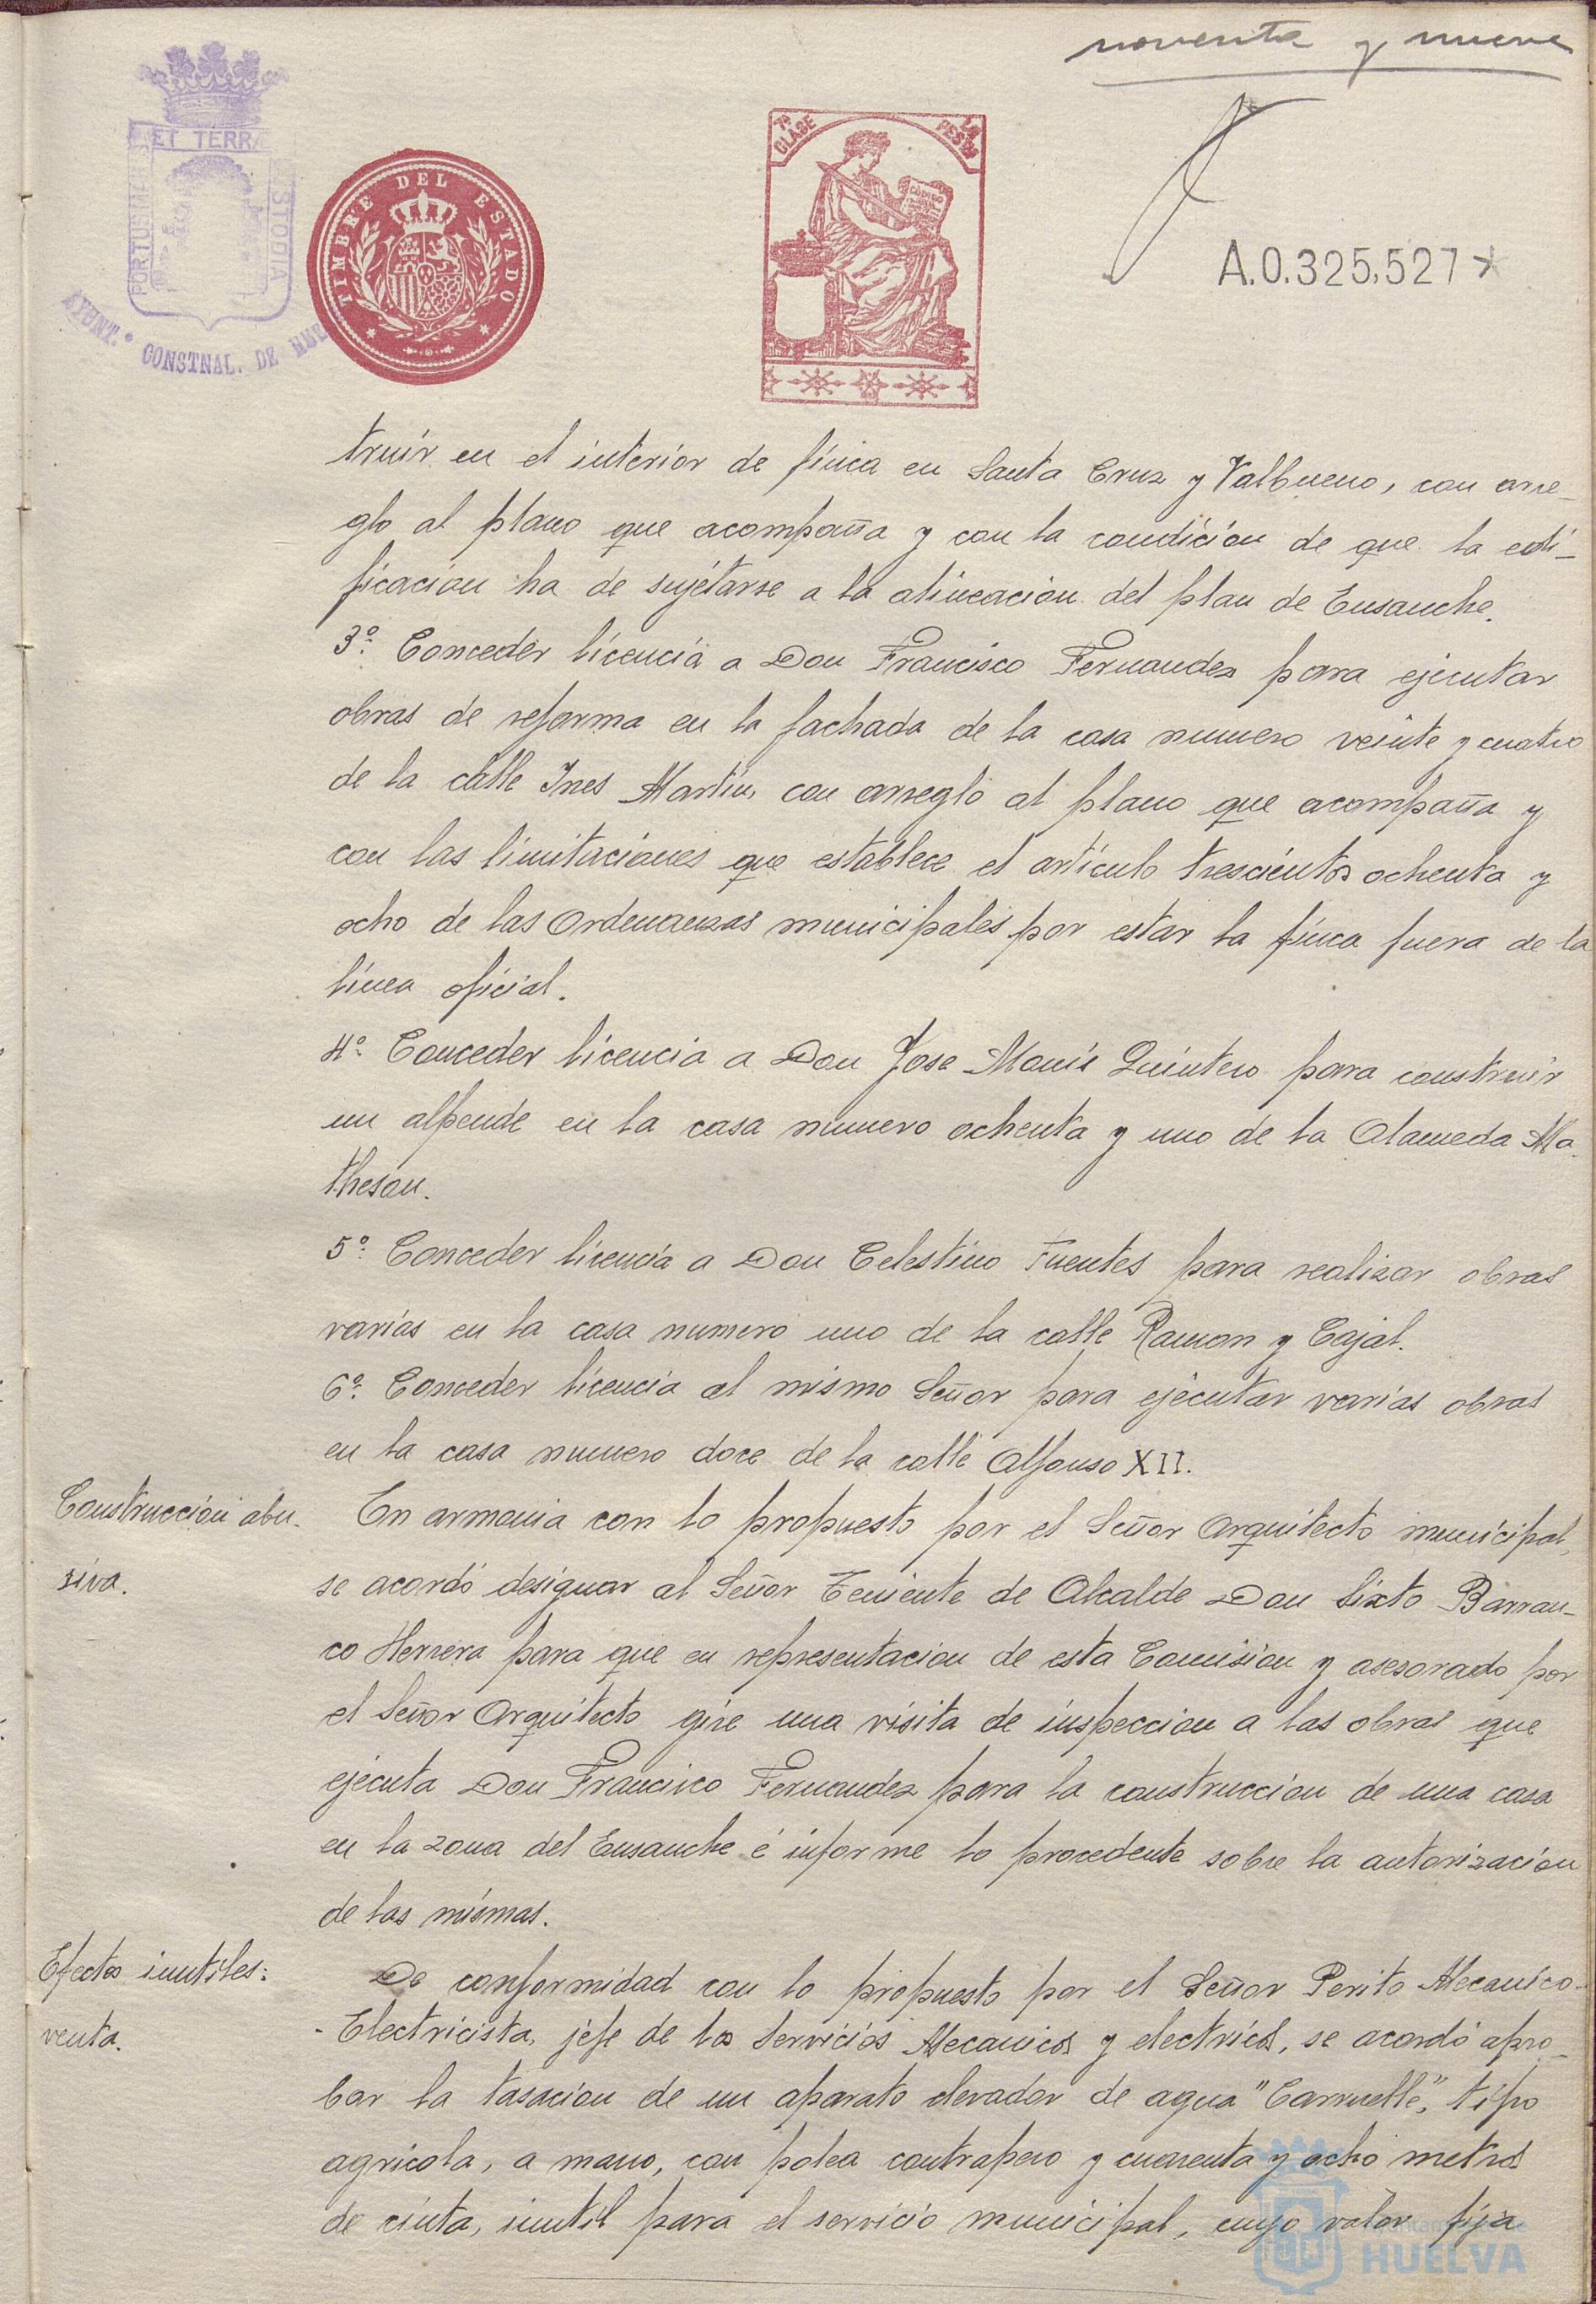 noventa y nueve
ET TERRA
PORTUS
STODIA
AYUNT.º CONSTNAL. DE
TIMBRE DEL ESTADO
7ª CLASE
PESETAS
A.0.325,527
truir en el interior de finca en Santa Cruz y Valbueno, con arre-
glo al plano que acompaña y con la condición de que la edi-
ficacion ha de sujetarse a la alineacion del plan de Ensanche.
3º Conceder licencia a Don Francisco Fernandez para ejecutar
obras de reforma en la fachada de la casa numero veinte y cuatro
de la calle Ines Martin, con arreglo al plano que acompaña y
con las limitaciones que establece el articulo trescientos ochenta y
ocho de las Ordenanzas municipales por estar la finca fuera de la
linea oficial.
4º Conceder licencia a Don Jose Quintero para construir
un alpende en la casa numero ochenta y uno de la Alameda Ma
theson.
5º Conceder licencia a Don Celestino Fuentes para realizar obras
varias en la casa numero uno de la calle Ramon y Cajal.
6º Conceder licencia al mismo Señor para ejecutar varias obras
en la casa numero doce de la calle Alfonso XII.
Construccion abu-
siva.
En armonia con lo propuesto por el Señor Arquitecto municipal,
se acordó designar al Señor Teniente de Alcalde Don Sixto Barran-
co Herrera para que en representacion de esta Comision y asesorado por
el Señor Arquitecto gire una visita de inspeccion a las obras que
ejecuta Don Francisco Fernandez para la construccion de una casa
en la zona del Ensanche é informe lo procedente sobre la autorizacion
de las mismas.
Efectos inutiles:
venta.
De conformidad con lo propuesto por el Señor Perito Mecanico-
-Electricista, jefe de los Servicios Mecanicos y electricos, se acordó apro-
bar la tasacion de un aparato elevador de agua "Carruelle", tipo
agricola, a mano, con polea contrapeso y cuarenta y ocho metros
de cinta, inutil para el servicio municipal, cuyo valor fija
HUELVA